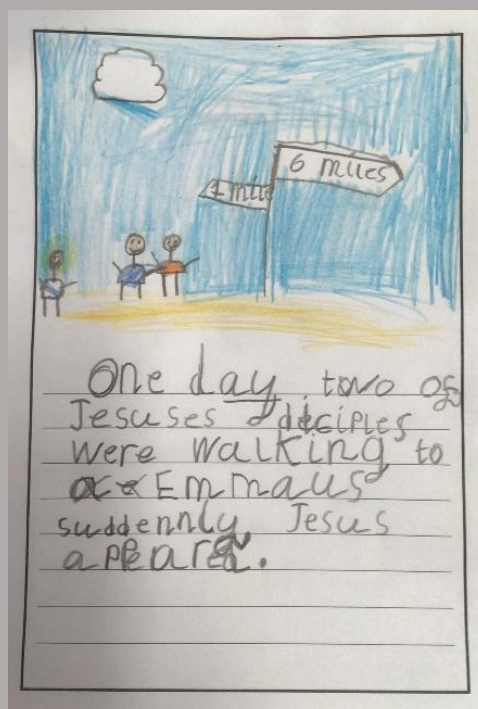 6 miles
1 mile
One day two of
Jesuses diciples
were walking to
Emmaus
suddennly Jesus
appeared.